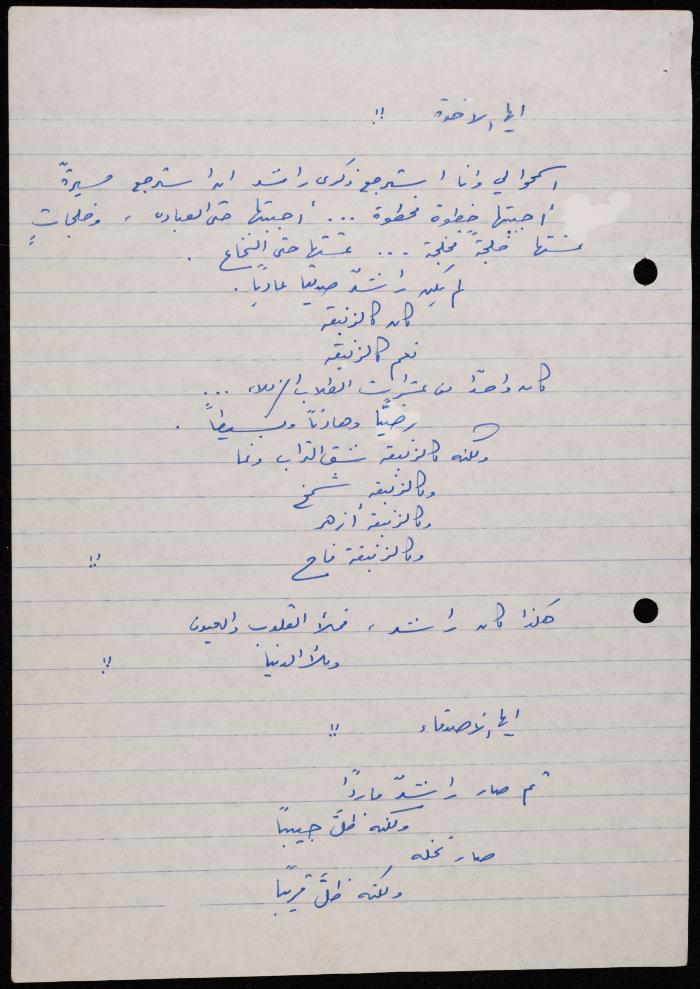 ايها الاخوة !!
اسمحوا لي وانا استرجع ذكرى راشد ان استرجع مسيرةً
أحببتها خطوة بخطوة ... أحببتها حتى العباده ، وخلجاتٍ
عشتها خلجةً بخلجة ... عشتها حتى النخاع .
لم يكن راشدٌ صديقا عادياً .
كان كالزنبقه
نعم كالزنبقه
كان واحدًا من عشرات الطلاب الزملاء ...
رضيًّا وهادئاً وبسيطاً .
ولكنه كالزنبقه شق التراب ونما
وكالزنبقه شمخ
وكالزنبقه أزهر
وكالزنبقة فاح !!
هكذا كان راشد ، فملأ القلوب والعيون
وملأ الدنيا !!
ايها الاصدقاء !!
ثم صار راشدٌ ماردًا
ولكنه ظلَّ حبيباً
صار نخله
ولكنه ظلَّ قريباً